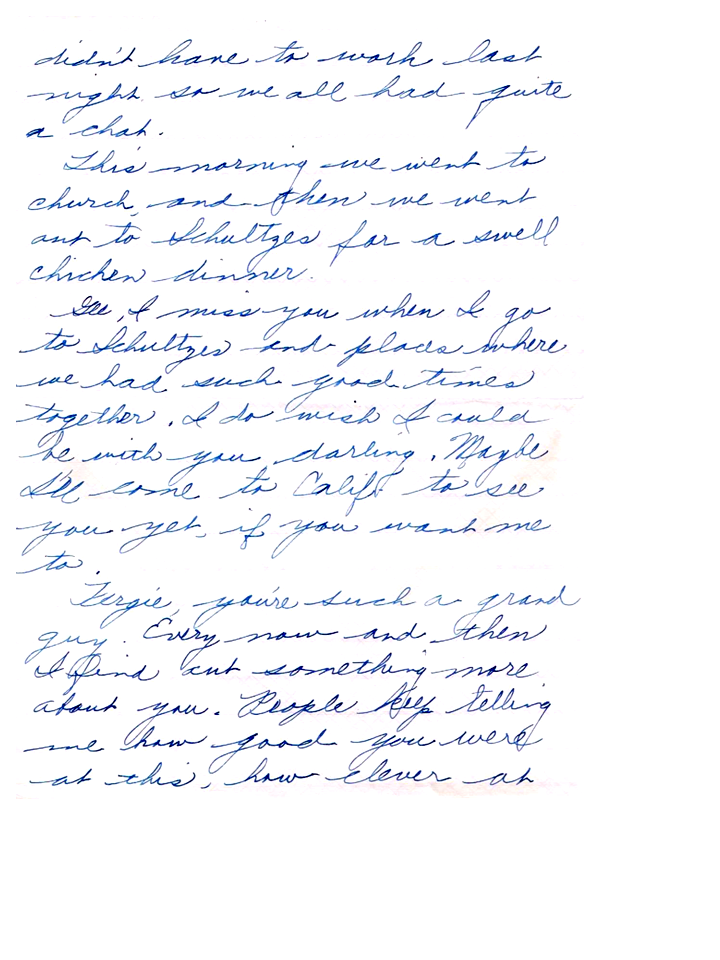 didn't have to work last
night so we all had quite
a chat.
This morning we went to
church, and then we went
out to Schultzes for a swell
chicken dinner.
Gee, I miss you when I go
to Schultzes and places where
we had such good times
together. I do wish I could
be with you, darling. Maybe
I'll come to Calif. to see
you yet, if you want me
to.
Fergie, you're such a grand
guy. Every now and then
I find out something more
about you. People keep telling
me how good you were
at this, how clever at